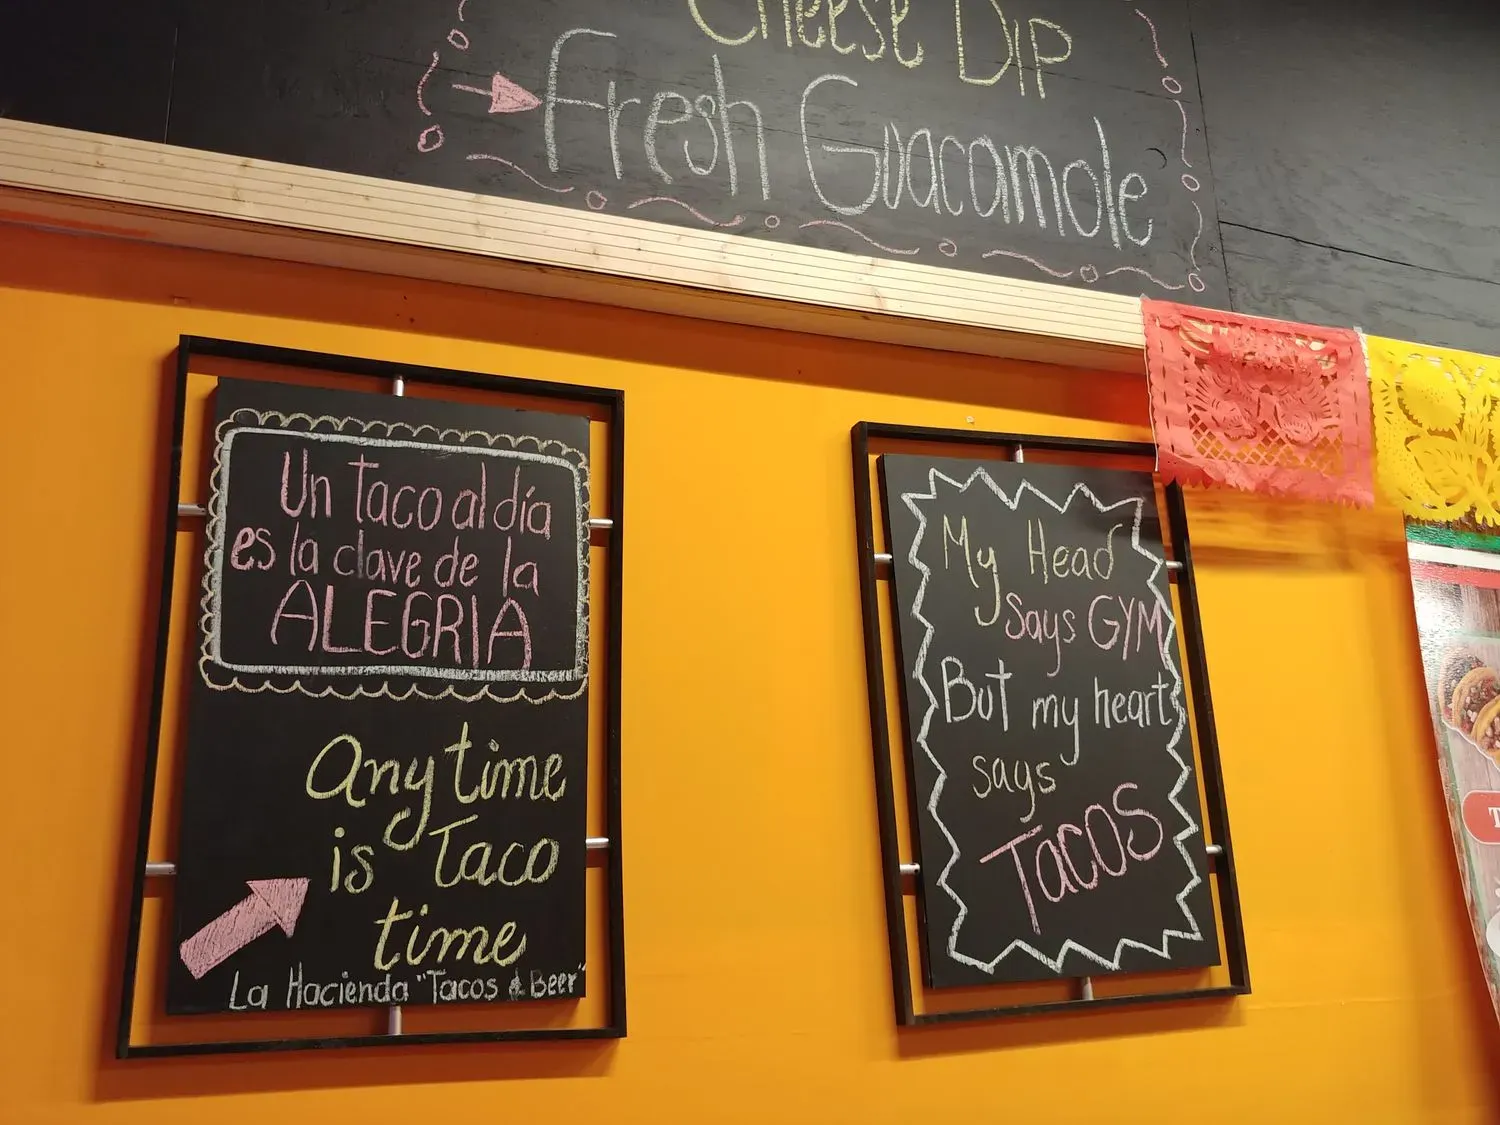 Cheese Dip
Fresh Guacamole
Un Taco al día
es la clave de la
ALEGRIA
Any time
is Taco
time
La Hacienda "Tacos & Beer"
My Head
says GYM
But my heart
says
TACOS
T